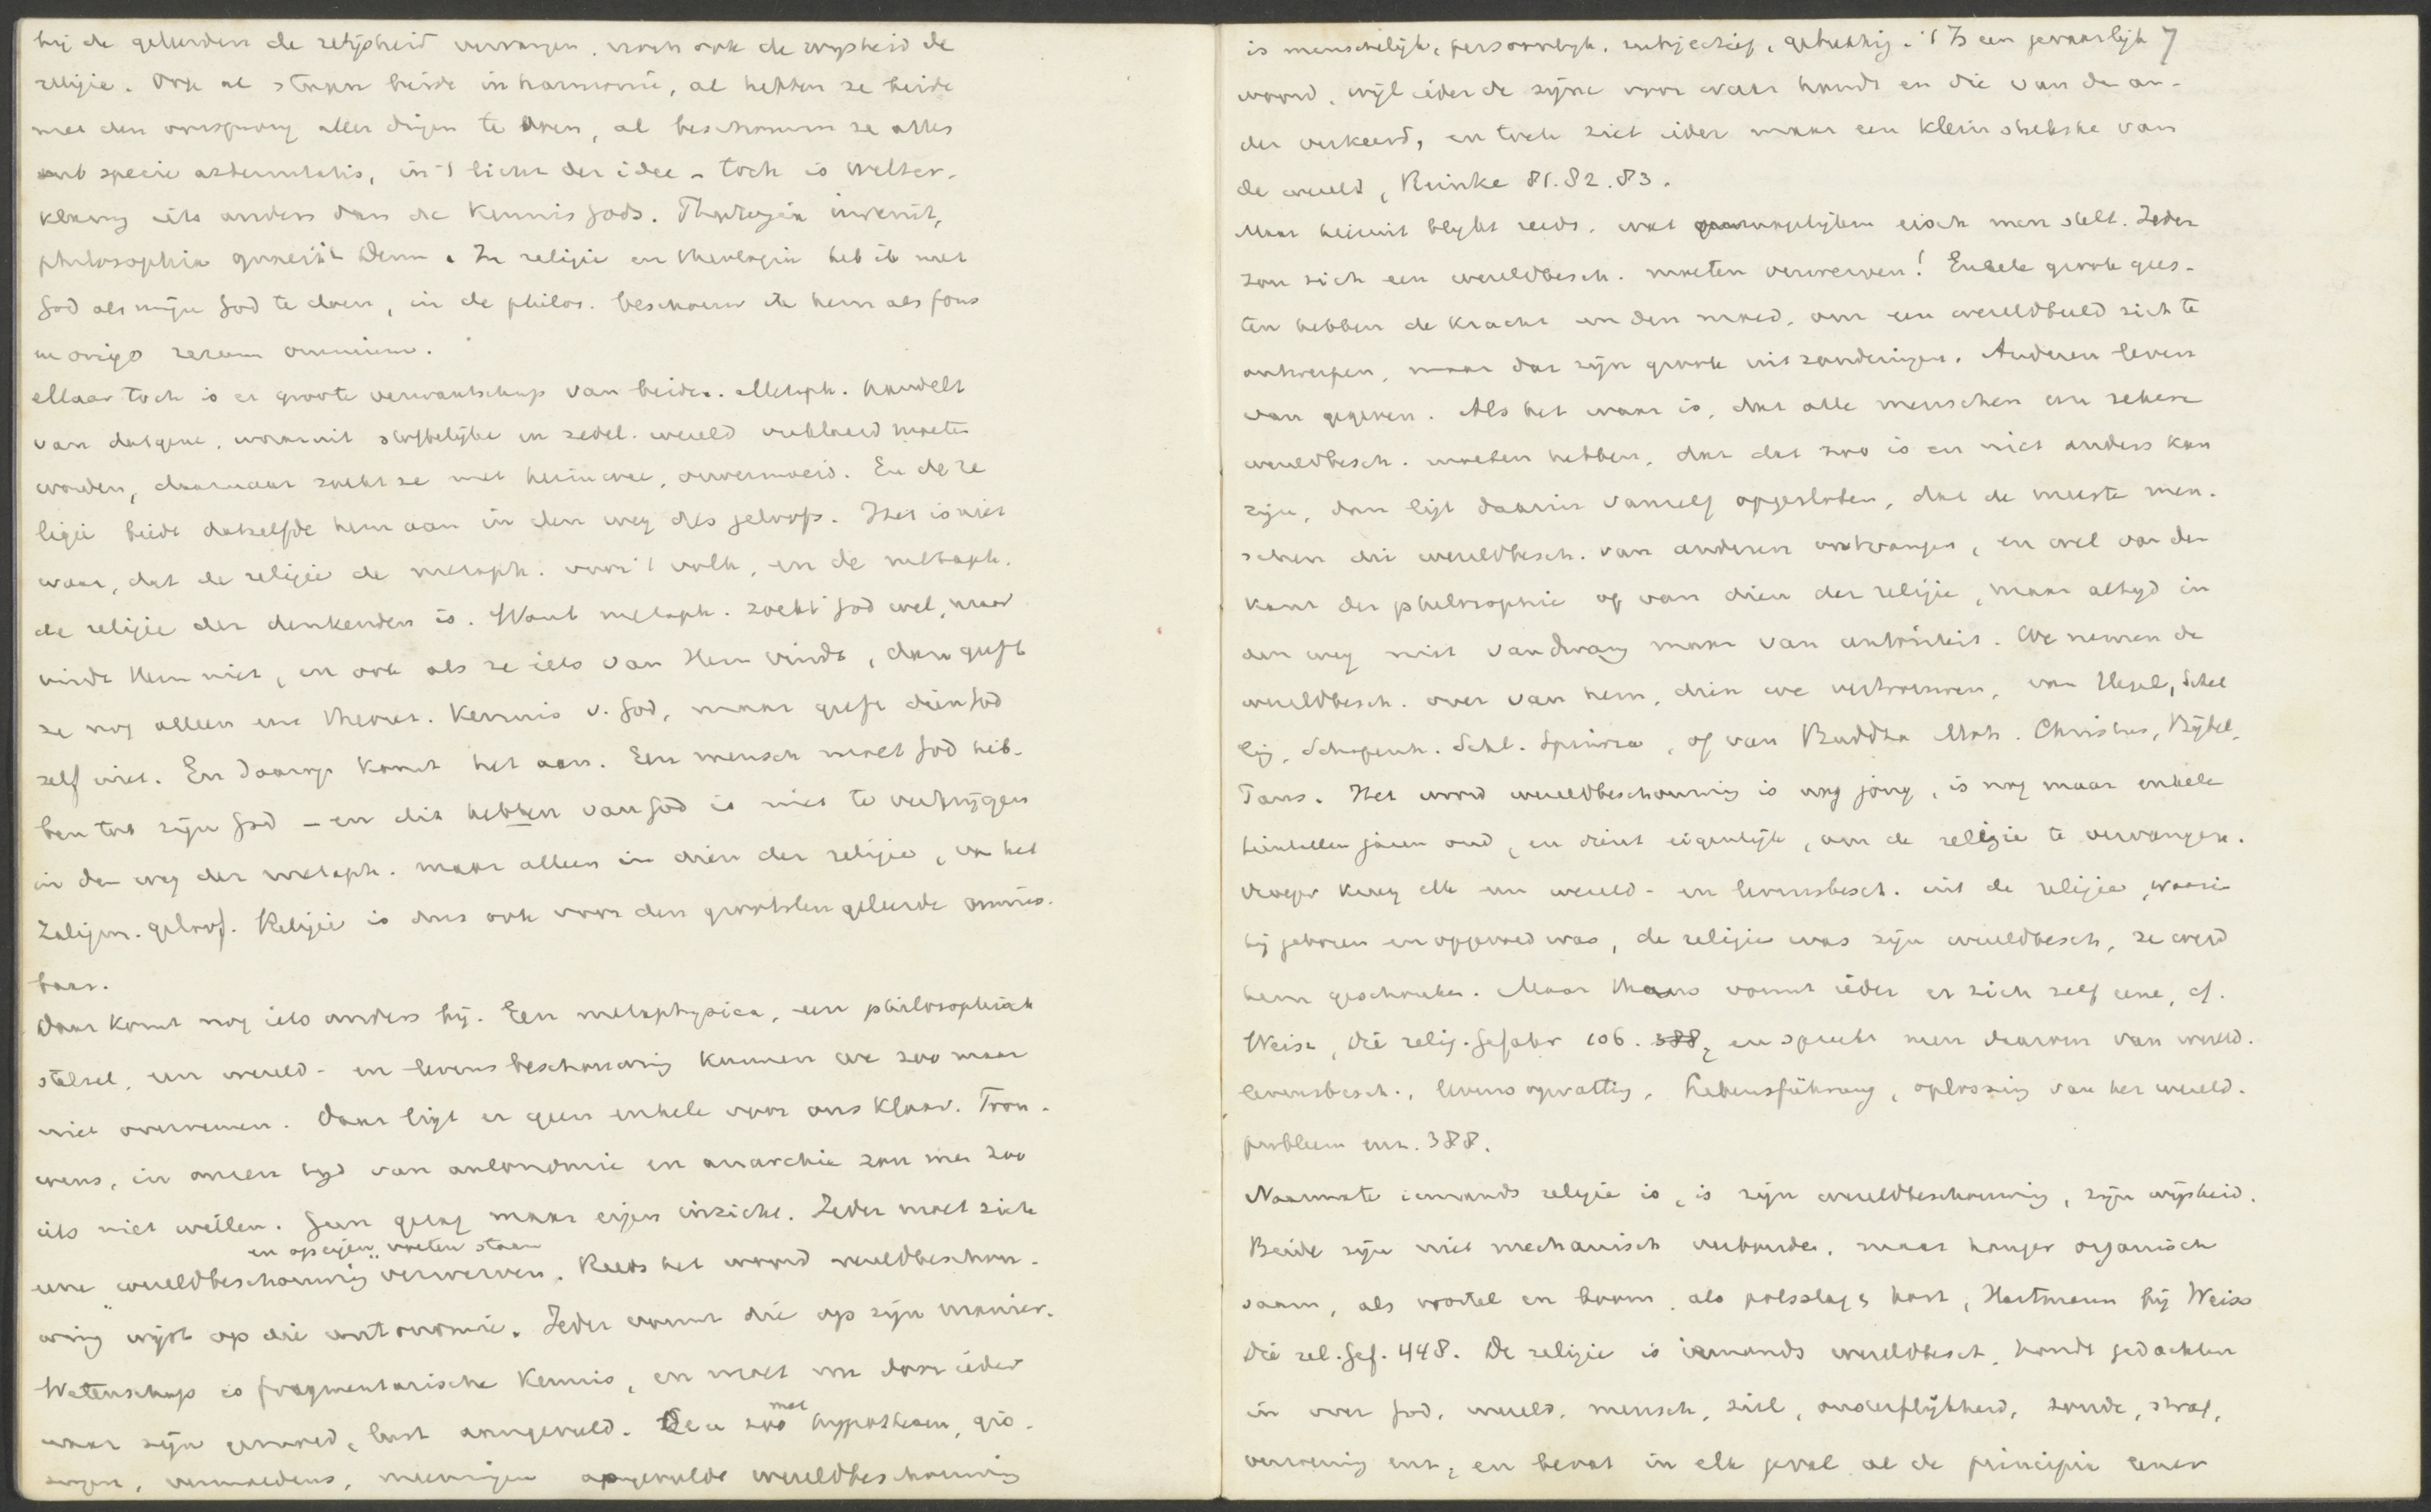 bij de geleerden de wijsheid vervangen, noch ook de wijsheid de
religie. Ook al staan beide in harmonie, al hebben ze beide
met den oorsprong aller dingen te doen, al beschouwen ze alles
sub specie aeternitatis, in 't licht der idee – toch is welver-
klaring iets anders dan de kennis Gods. Theologia invenit,
philosophia quaerit Deum. In religie en theologie heb ik met
God als mijn God te doen, in de philos. beschouw ik hem als fons
et origo rerum omnium.
Maar toch is er groote verwantschap van beide. Metaph. handelt
van datgene, waaruit stoffelijke en zedel. wereld verklaard moeten
worden, daarnaar zoekt ze met heimwee, onvermoeid. En de re
ligie biedt datzelfde hem aan in den weg des geloofs. Het is niet
waar, dat de religie de metaph. voor 't volk, en de metaph.
de religie der denkenden is. Want metaph. zoekt God wel, maar
vindt Hem niet, en ook als ze iets van Hem vindt, dan geeft
ze nog alleen eene theoret. kennis v. God, maar geeft dien God
zelf niet. En daarop komt het aan. Een mensch moet God heb-
ben tot zijn God – en dit hebben van God is niet te verkrijgen
in den weg der metaph. maar alleen in dien der religie, van het
zaligm. geloof. Religie is dus ook voor den grootsten geleerde onmis-
baar.
Daar komt nog iets anders bij. Een metaphysica, een philosophisch
stelsel, een wereld- en levensbeschouwing kunnen we zoo maar
niet overnemen. Daar ligt er geen enkele voor ons klaar. Trou-
wens, in onzen tijd van autonomie en anarchie zou men zoo
iets niet willen. Geen gezag maar eigen inzicht. Ieder moet zich
en op eigen voeten staan
eene "wereldbeschouwing" verwerven. Reeds het woord wereldbeschou-
wing wijst op die autonomie. Ieder vormt die op zijn manier.
Wetenschap is fragmentarische kennis, en moet nu door ieder
naar zijn gemoed, lust aangevuld. De zoo met hypothesen, gis-
singen, vermoedens, meeningen aangevulde wereldbeschouwing
is menschelijk, persoonlijk, subjectief, gebrekkig. 't Is een gevaarlijk 7
woord, wijl ieder de zijne voor waar houdt en die van de an-
der verkeerd, en toch ziet ieder maar een klein stukske van
de wereld, Reinke 81.82.83.
Maar hieruit blijkt reeds, wat eisch men stelt. Ieder
zou zich een wereldbesch. moeten verwerven! Enkele groote gees-
ten hebben de kracht en den moed, om een wereldbeeld zich te
ontwerpen, maar dat zijn groote uitzonderingen. Anderen leven
van gegeven. Als het waar is, dat alle menschen een zekere
wereldbesch. moeten hebben, dat dat zoo is en niet anders kan
zijn, dan ligt daarin vanzelf opgesloten, dat de meeste men-
schen die wereldbesch. van anderen ontvangen, en wel van den
kant der philosophie of van dien der religie, maar altijd in
den weg niet van dwang maar van autoriteit. We nemen de
wereldbesch. over van hem, dien we vertrouwen, van Hegel, Schel
ling, Schopenh. Schl. Spinoza, of van Buddha Moh. Christus, Bijbel,
Paus. Het woord wereldbeschouwing is nog jong, is nog maar enkele
tientallen jaren oud, en dient eigenlijk, om de religie te vervangen.
Vroeger kreeg elk een wereld- en levensbesch. uit de religie, waarin
hij geboren en opgevoed was, de religie was zijn wereldbesch, ze werd
hem geschonken. Maar thans vormt ieder er zich zelf eene, cf.
Weiss, Die relig. Gefahr 106. 388, en spreekt men daarom van wereld-
levensbesch., levensopvatting, Lebensführung, oplossing van het wereld-
probleem enz. 388.
Naarmate iemands religie is, is zijn wereldbeschouwing, zijn wijsheid.
Beide zijn niet mechanisch verbonden, maar hangen organisch
saam, als wortel en boom, als polsslag & hart, Hartmann bij Weiss
Die rel. Gef. 448. De religie is iemands wereldbesch, houdt gedachten
in over God, wereld, mensch, ziel, onsterflijkheid, zonde, straf,
verzoening enz, en bevat in elk geval al de principia eener